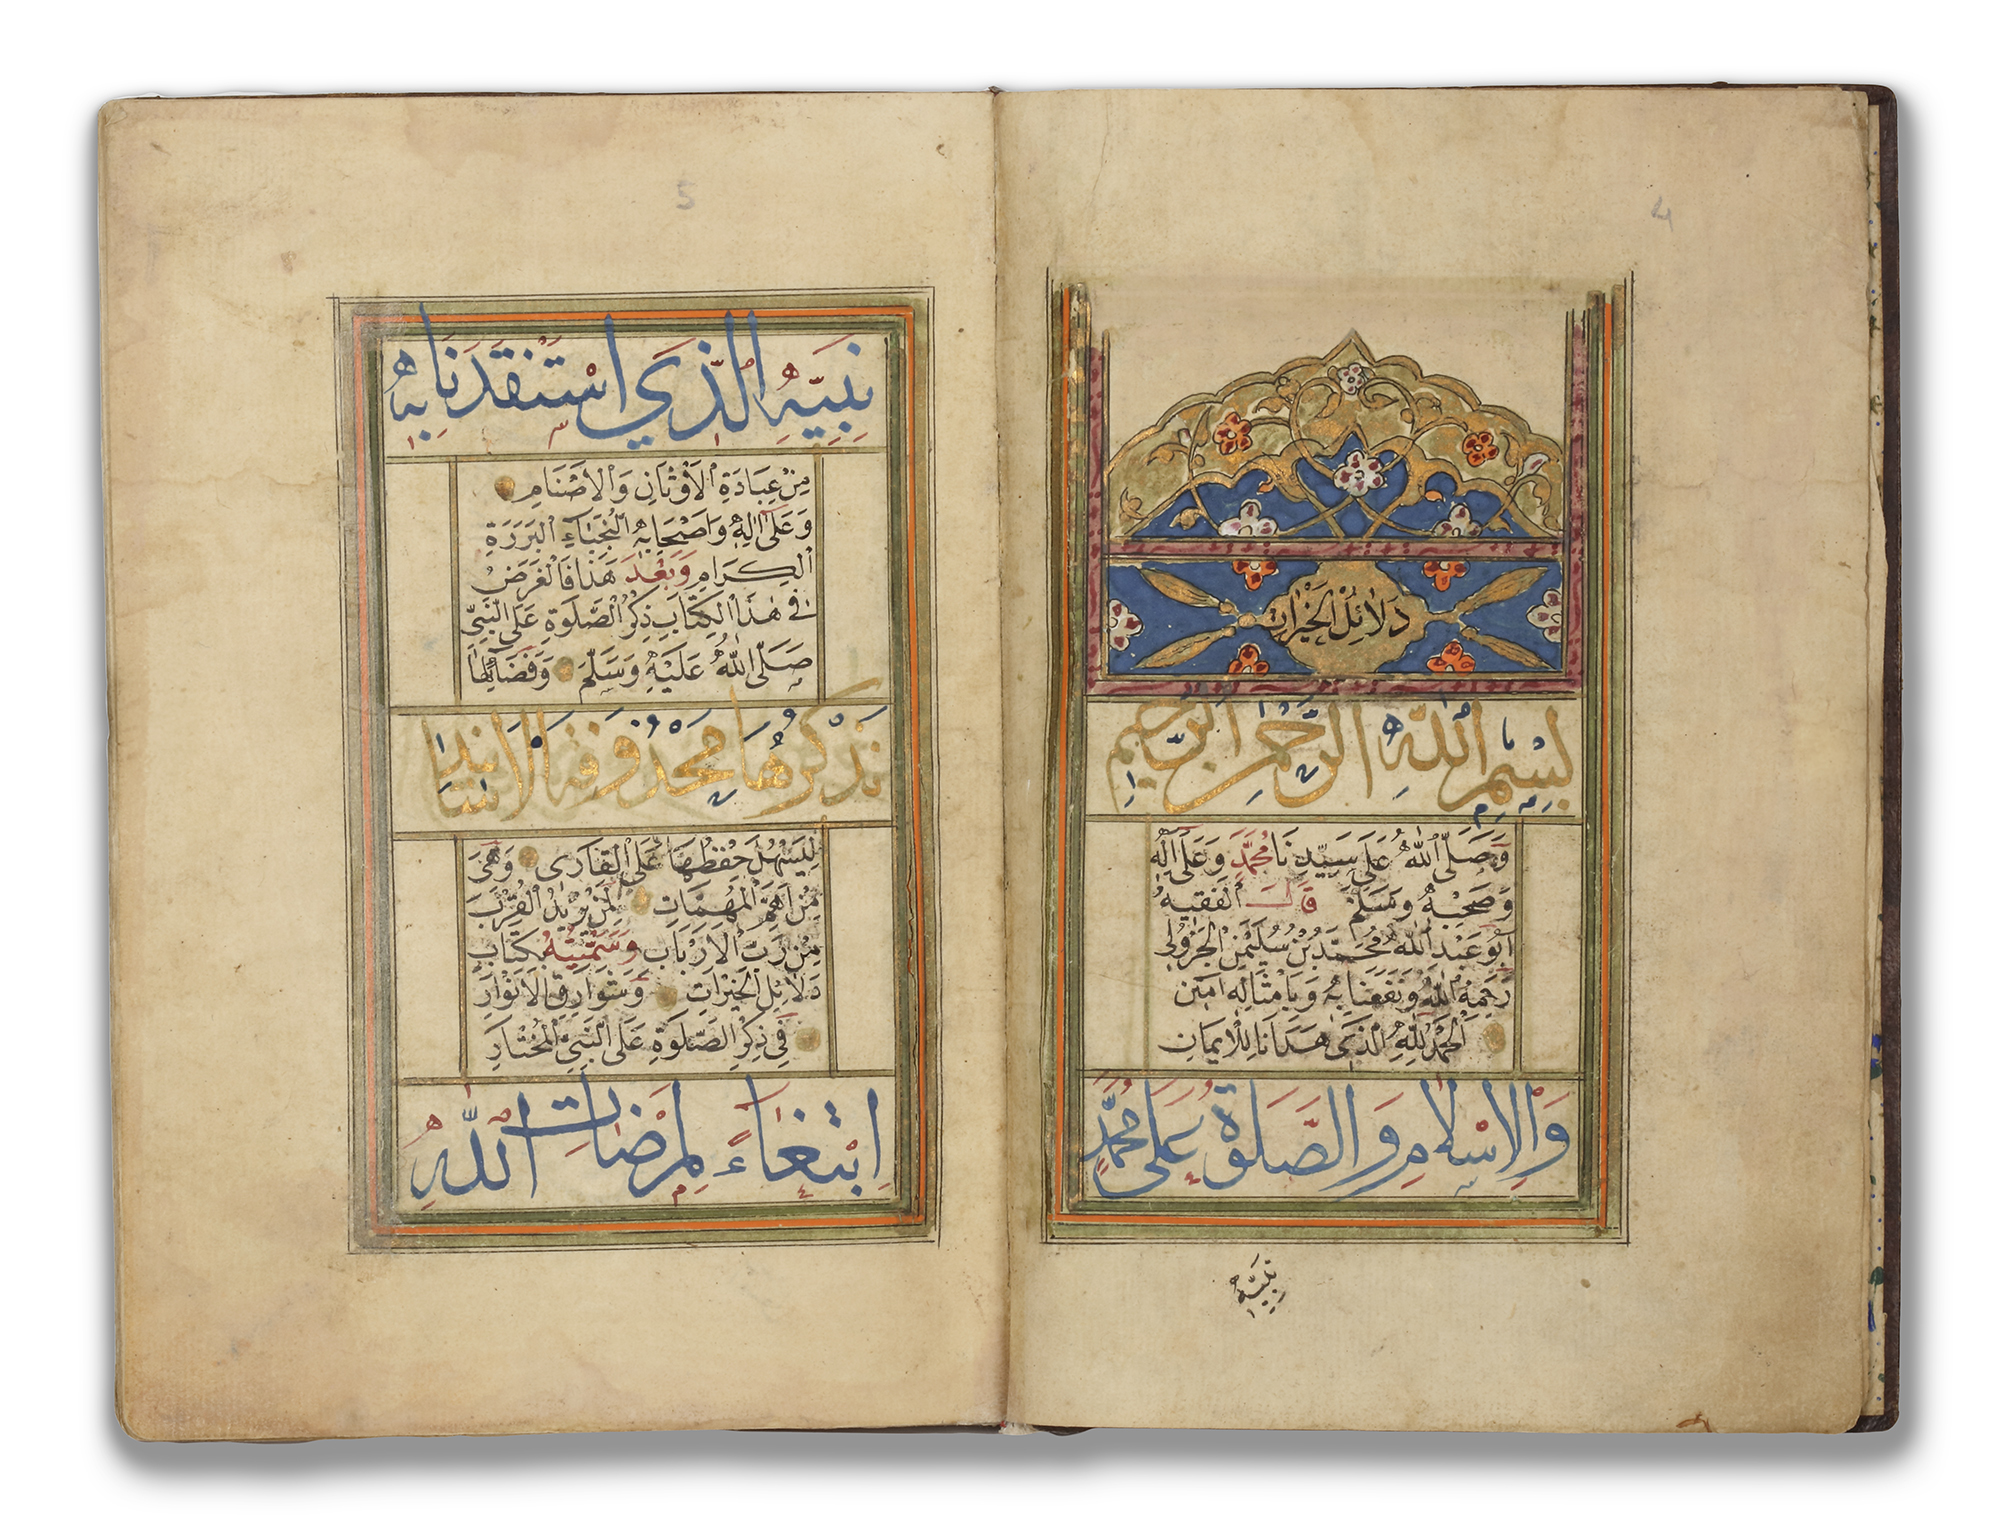 4
دَلَائِلُ الْخَيْرَات
بِسْمِ اللّٰهِ الرَّحْمٰنِ الرَّحِيمِ
وَصَلَّى اللّٰهُ عَلٰى سَيِّدِنَا مُحَمَّدٍ وَعَلٰى اٰلِهِ
وَصَحْبِهِ وَسَلَّمَ قَالَ الْفَقِيهُ
اَبُو عَبْدِ اللّٰهِ مُحَمَّدُ بْنُ سُلَيْمٰنَ الْجَزُولِي
رَحِمَهُ اللّٰهُ وَنَفَعَنَا بِهِ وَبِاَمْثَالِهِ اٰمِين
اَلْحَمْدُ لِلّٰهِ الَّذِي هَدَانَا لِلْاِيمَانِ
وَالْاِسْلَامِ وَالصَّلٰوةُ عَلٰى مُحَمَّدٍ
نَبِيِّهِ
5
نَبِيِّهِ الَّذِي اسْتَنْقَذَنَا بِهِ
مِنْ عِبَادَةِ الْاَوْثَانِ وَالْاَصْنَامِ
وَعَلٰى اٰلِهِ وَاَصْحَابِهِ النُّجَبَاءِ الْبَرَرَةِ
الْكِرَامِ وَبَعْدَ هَذَا فَالْغَرَضُ
فِي هٰذَا الْكِتَابِ ذِكْرُ الصَّلٰوةِ عَلَى النَّبِيِّ
صَلَّى اللّٰهُ عَلَيْهِ وَسَلَّمَ وَفَضَائِلُهَا
نَذْكُرُهَا مَحْذُوفَةَ الْاَسَانِيدِ
لِيَسْهُلَ حِفْظُهَا عَلَى الْقَارِى وَهِيَ
مِنْ اَهَمِّ الْمُهِمَّاتِ لِمَنْ يُرِيدُ الْقُرْبَ
مِنْ رَبِّ الْاَرْبَابِ وَسَمَّيْتُهُ بِكِتَابِ
دَلَائِلِ الْخَيْرَاتِ وَشَوَارِقِ الْاَنْوَارِ
فِي ذِكْرِ الصَّلٰوةِ عَلَى النَّبِيِّ الْمُخْتَارِ
اِبْتِغَاءً لِمَرْضَاتِ اللّٰهِ